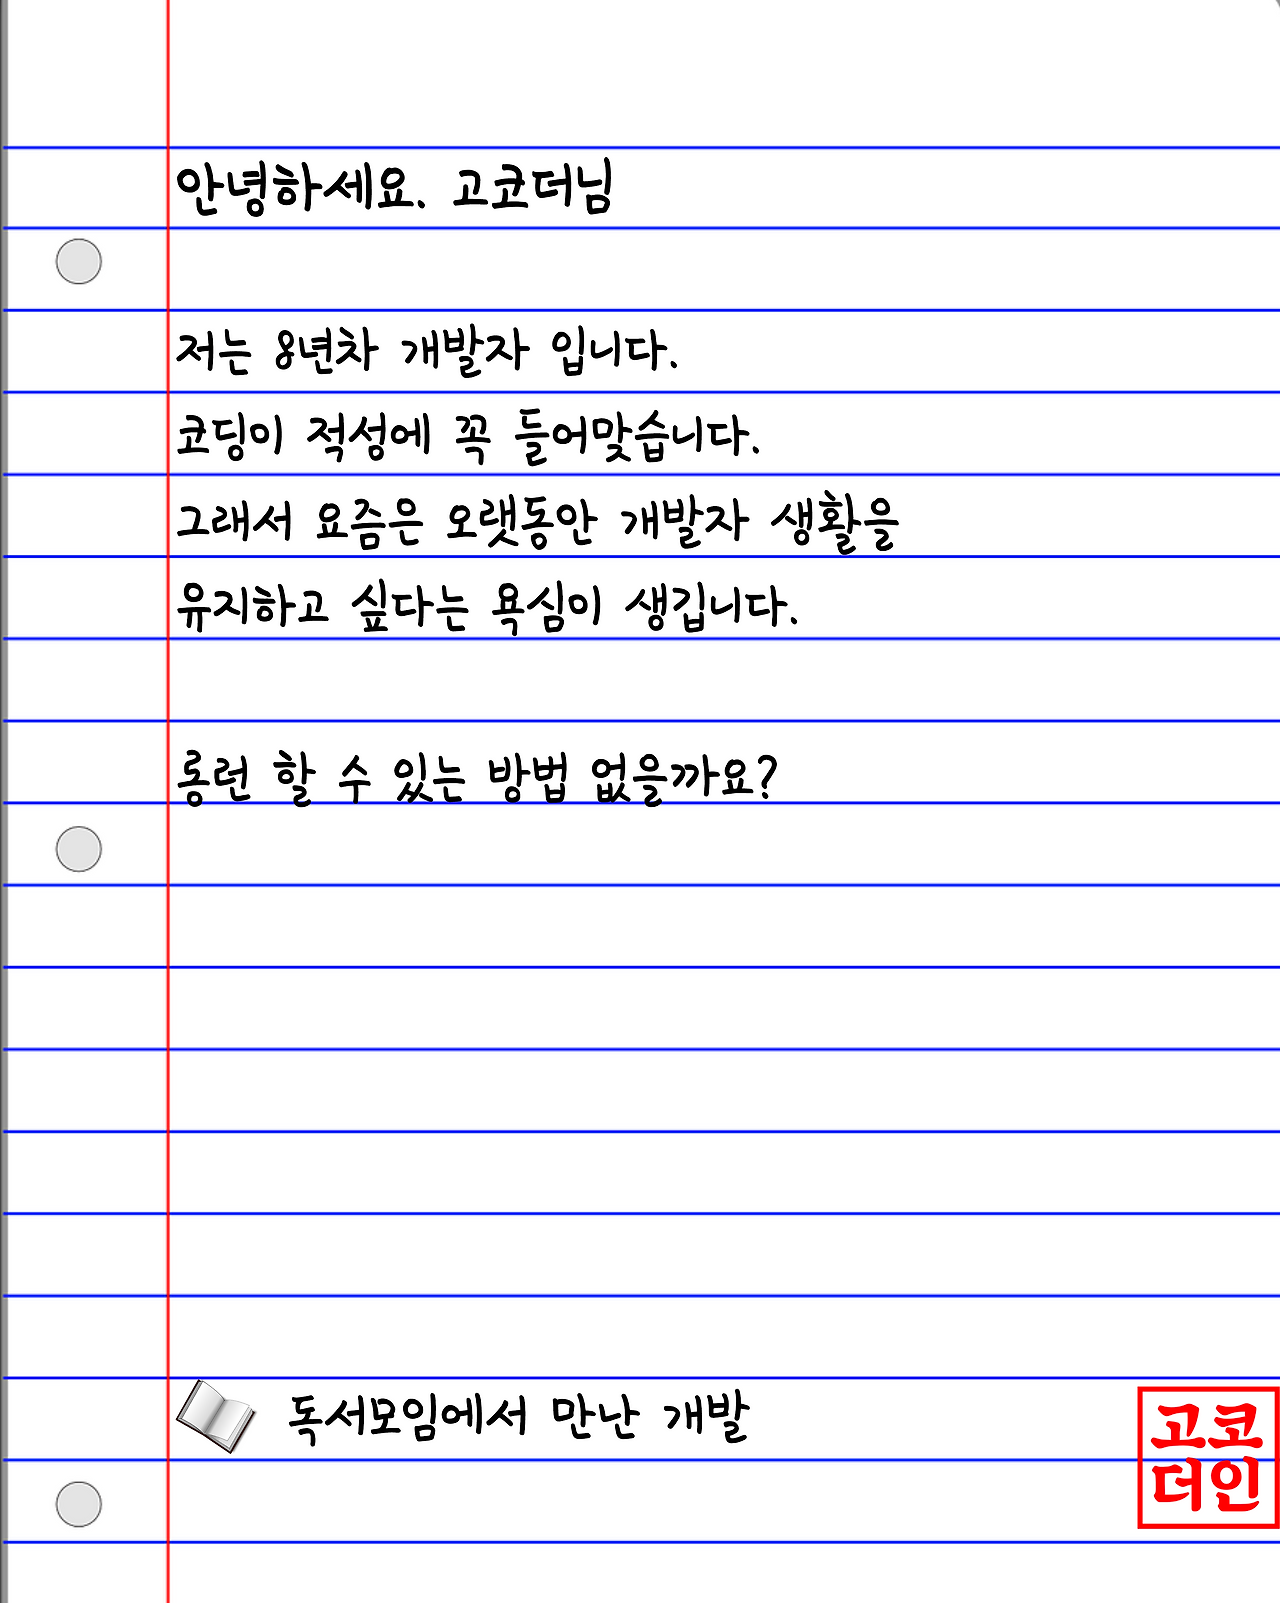 안녕하세요. 고코더님
저는 8년차 개발자 입니다.
코딩이 적성에 꼭 들어맞습니다.
그래서 요즘은 오랫동안 개발자 생활을
유지하고 싶다는 욕심이 생깁니다.
롱런 할 수 있는 방법 없을까요?
독서모임에서 만난 개발
고코
더인